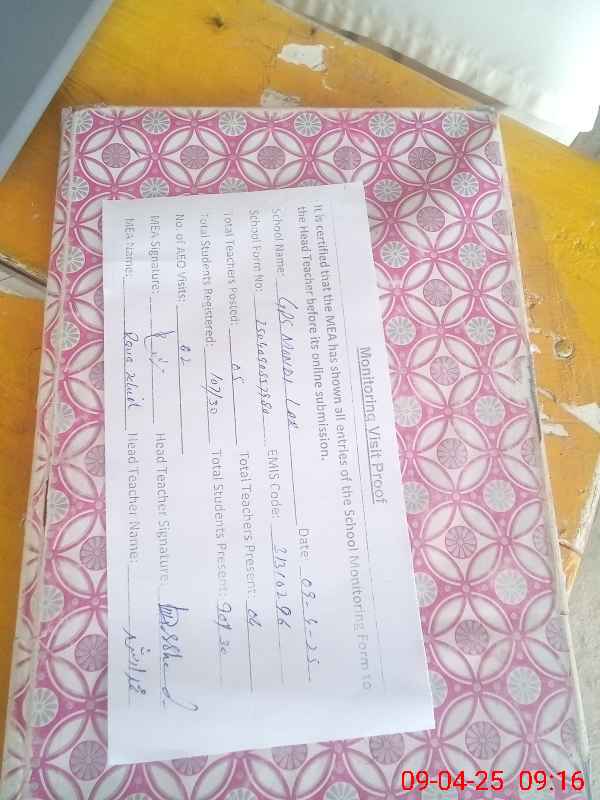 Monitoring Visit Proof
It is certified that the MEA has shown all entries of the School Monitoring Form to
the Head Teacher before its online submission.
School Name: GPS MUNDI Date: 09-4-25
School Form No: EMIS Code: 31310296
Total Teachers Posted: 05 Total Teachers Present:
Total Students Registered: 107/30 Total Students Present: 90/30
No. of AEO Visits: 02
MEA Signature: Head Teacher Signature:
MEA Name: Head Teacher Name:
09-04-25 09:16